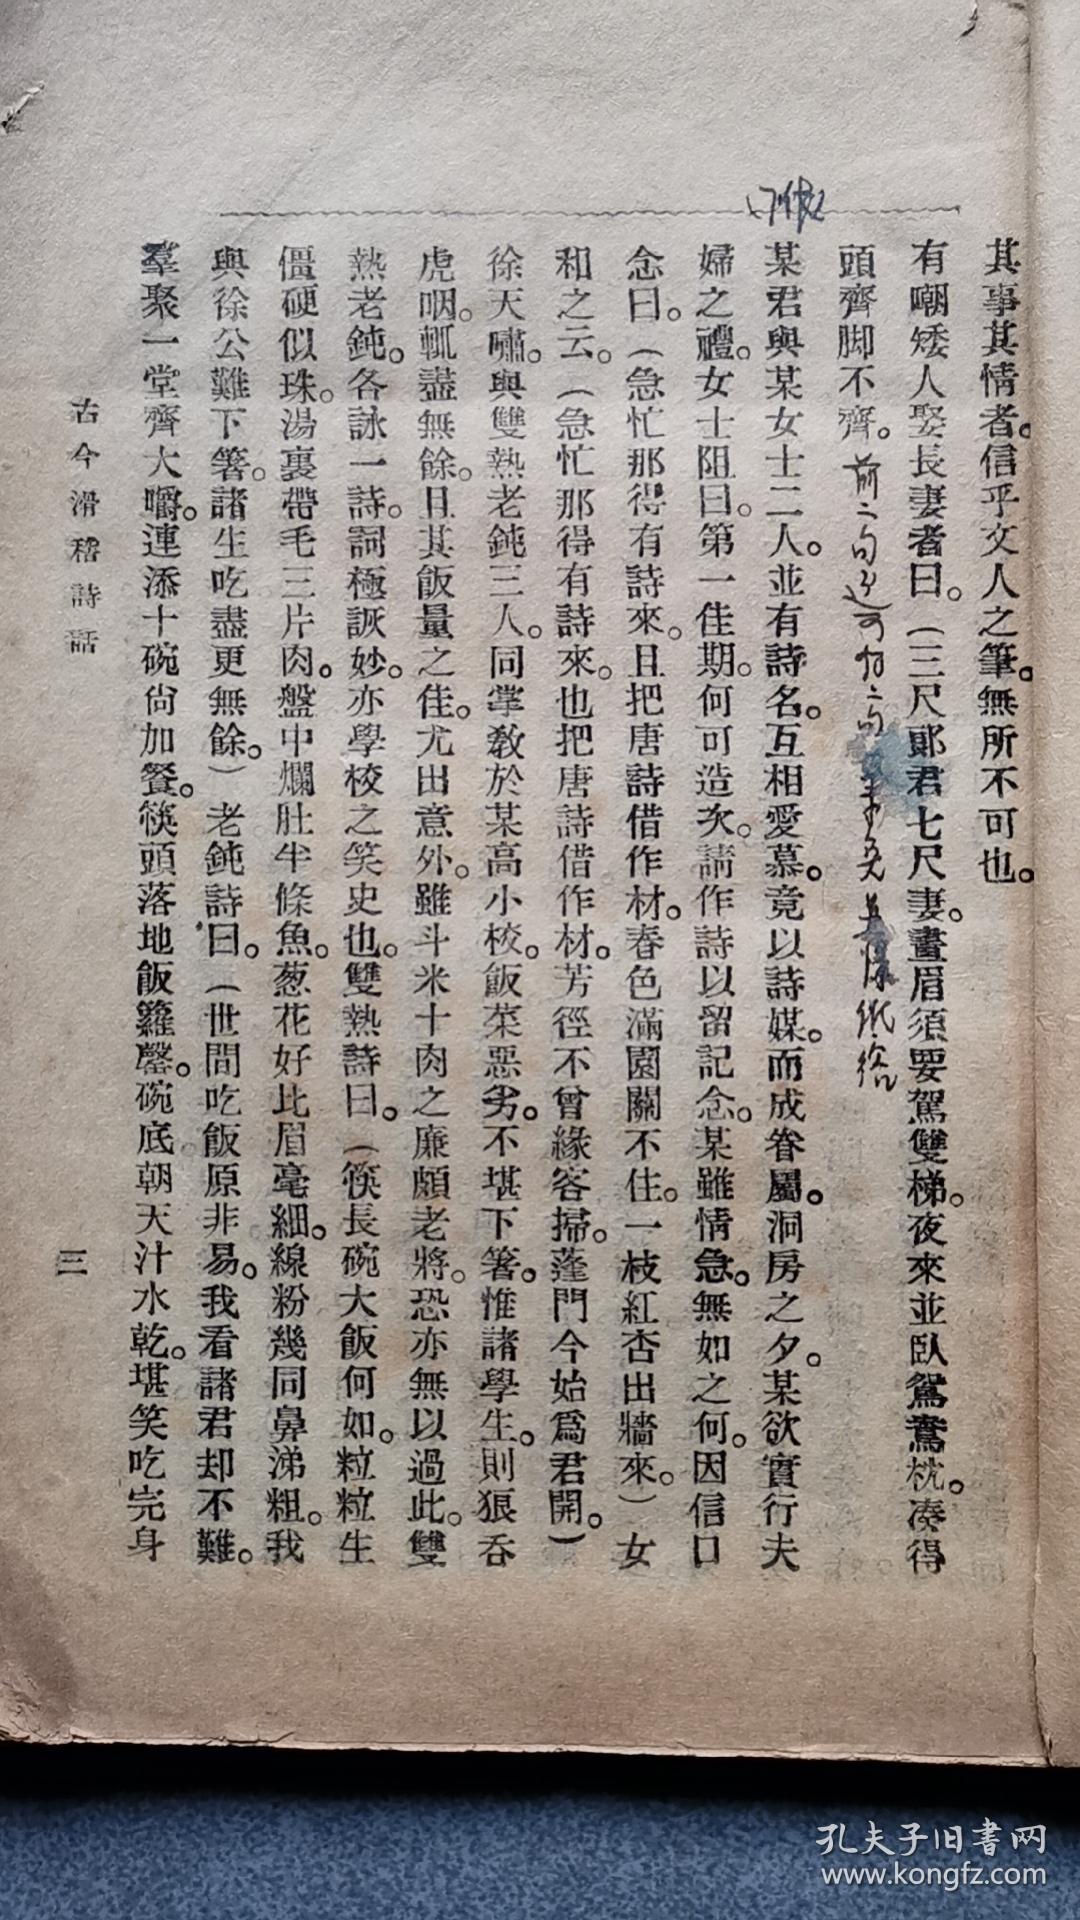 其事其情者。信乎文人之筆。無所不可也。
有嘲矮人娶長妻者曰。（三尺郎君七尺妻。畫眉須要駕雙梯。夜來並臥鴛鴦枕。湊得
頭齊脚不齊。前二句
某君與某女士二人。並有詩名。互相愛慕。竟以詩媒。而成眷屬。洞房之夕。某欲實行夫
婦之禮。女士阻曰。第一佳期。何可造次。請作詩以留記念。某雖情急。無如之何。因信口
念曰。（急忙那得有詩來。且把唐詩借作材。春色滿園關不住。一枝紅杏出牆來。）女
和之云。（急忙那得有詩來。也把唐詩借作材。芳徑不曾緣客掃。蓬門今始爲君開。）
徐天嘯。與雙熱老鈍三人。同掌敎於某高小校。飯菜惡劣。不堪下箸。惟諸學生。則狠吞
虎咽。輒盡無餘。且其飯量之佳。尤出意外。雖斗米十肉之廉頗老將。恐亦無以過此。雙
熱老鈍。各詠一詩。詞極詼妙。亦學校之笑史也。雙熱詩曰。（筷長碗大飯何如。粒粒生
僵硬似珠。湯裏帶毛三片肉。盤中爛肚半條魚。葱花好比眉毫細。線粉幾同鼻涕粗。我
與徐公難下箸。諸生吃盡更無餘。）老鈍詩曰。（世間吃飯原非易。我看諸君却不難。
羣聚一堂齊大嚼。連添十碗尙加餐。筷頭落地飯籮罄。碗底朝天汁水乾。堪笑吃完身
古今滑稽詩話
三
孔夫子旧書网
www.kongfz.com